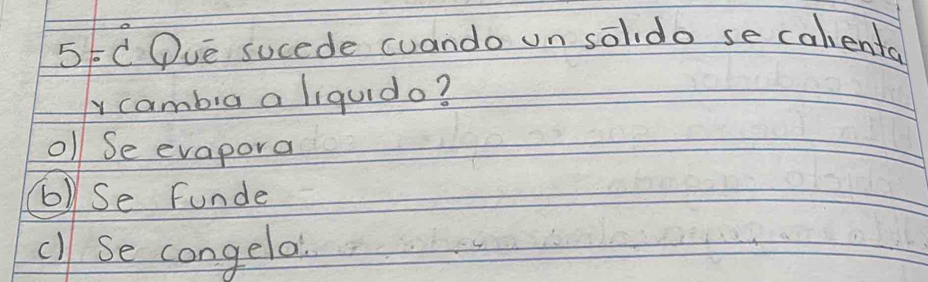 5-¿Qué sucede cuando un sólido se calienta
y cambia a líquido?
a) Se evapora
b) Se funde
c) Se congela.